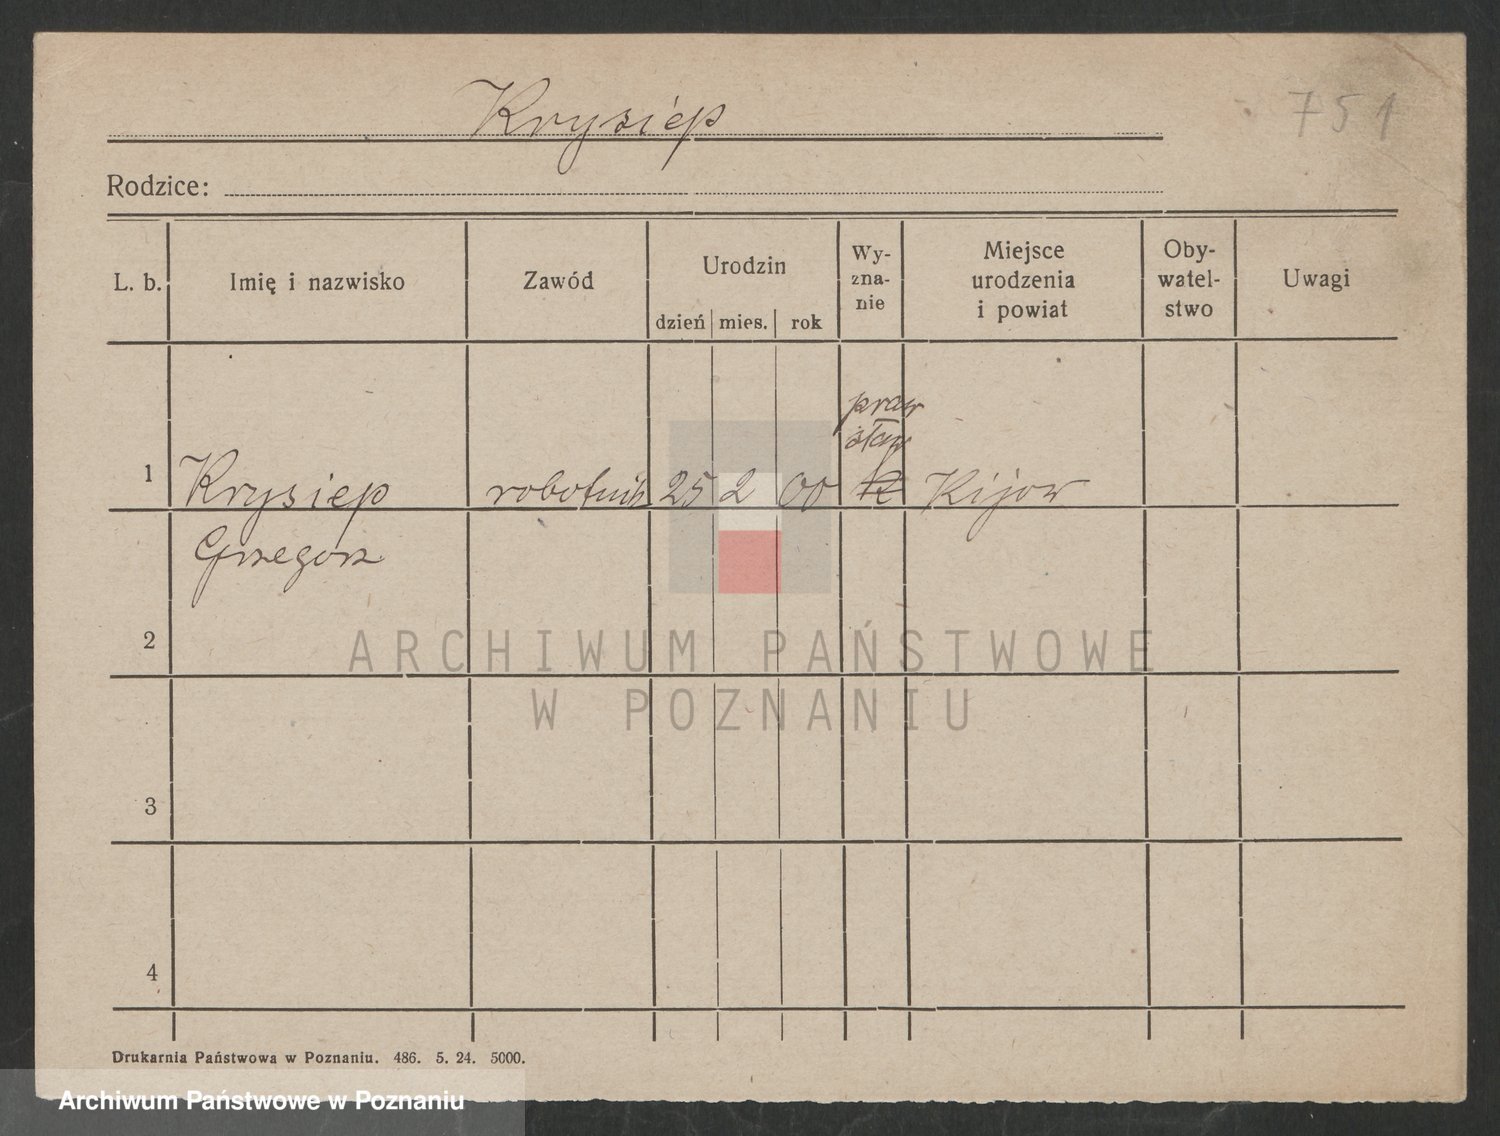 Krysiep
751
Rodzice:
L. b. Imię i nazwisko Zawód Urodzin dzień mies. rok Wy-zna-nie Miejsce urodzenia i powiat Oby-watel-stwo Uwagi
praw
sław
1 Krysiep robotnik 25 2 00 Kijow
Grzegorz
2
ARCHIWUM PAŃSTWOWE
W POZNANIU
3
4
Drukarnia Państwowa w Poznaniu. 486. 5. 24. 5000.
Archiwum Państwowe w Poznaniu